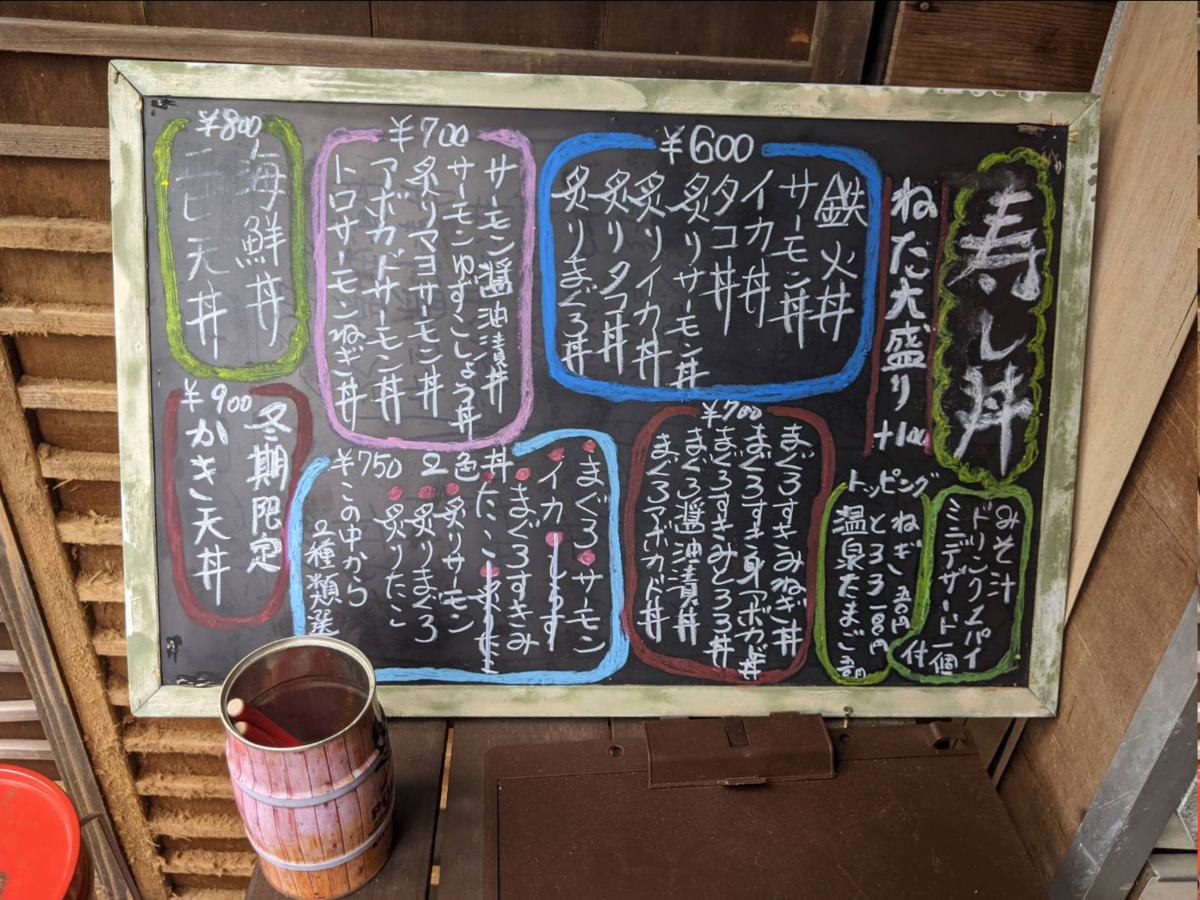 寿し丼
ねた大盛り +100
みそ汁
ドリンク
ミニデザート一個
付
トッピング
ねぎ 五〇円
とろろ 一〇〇円
温泉たまご
¥600
鉄火丼
サーモン丼
イカ丼
タコ丼
炙りサーモン丼
炙りイカ丼
炙りタコ丼
炙りまぐろ丼
¥700
まぐろすきみねぎ丼
まぐろすき身アボカド丼
まぐろすきみとろろ丼
まぐろ醤油漬丼
まぐろアボカド丼
¥700
サーモン醤油漬丼
サーモンゆずこしょう丼
炙りマヨサーモン丼
アボカドサーモン丼
トロサーモンねぎ丼
2色丼
¥750
まぐろ サーモン
イカ しらす
まぐろすきみ
たこ
炙りサーモン
炙りまぐろ
炙りたこ
この中から
2種類選
¥800
海鮮丼
天丼
冬期限定
¥900
かき天丼